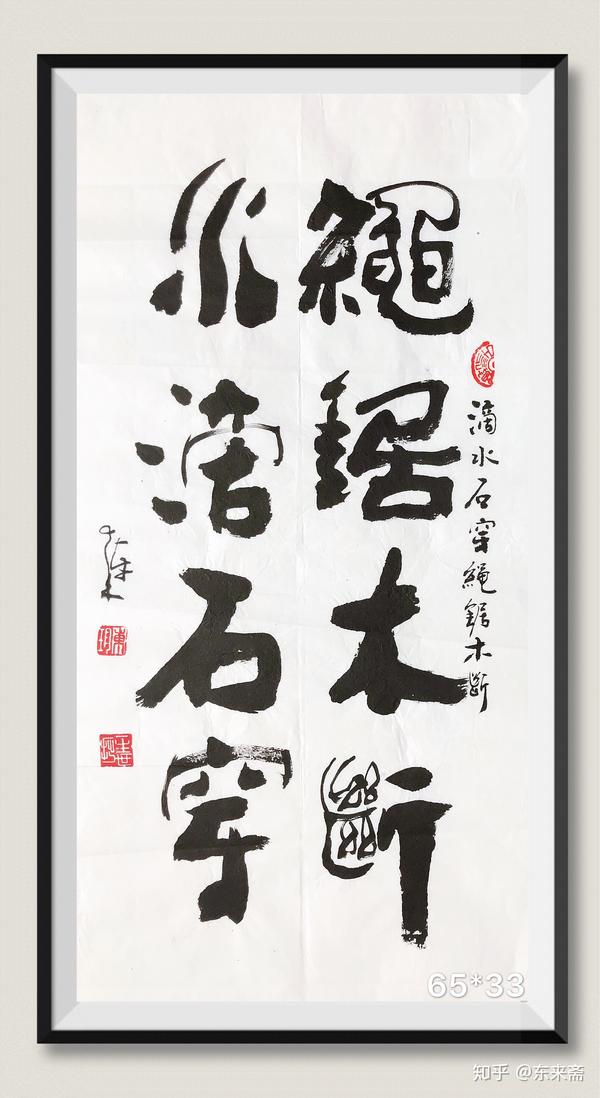 滴水石穿繩鋸木斷
繩鋸木斷
水滴石穿
65*33
知乎 @东来斋